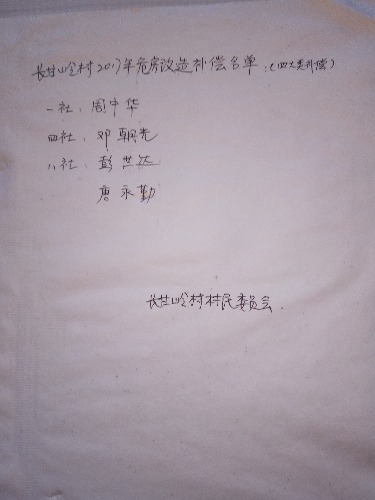 长甘岭村2017年危房改造补偿名单:(四大类补偿)
一社:周中华
四社:邓朝光
八社:彭世达
唐永勤
长甘岭村村民委员会.